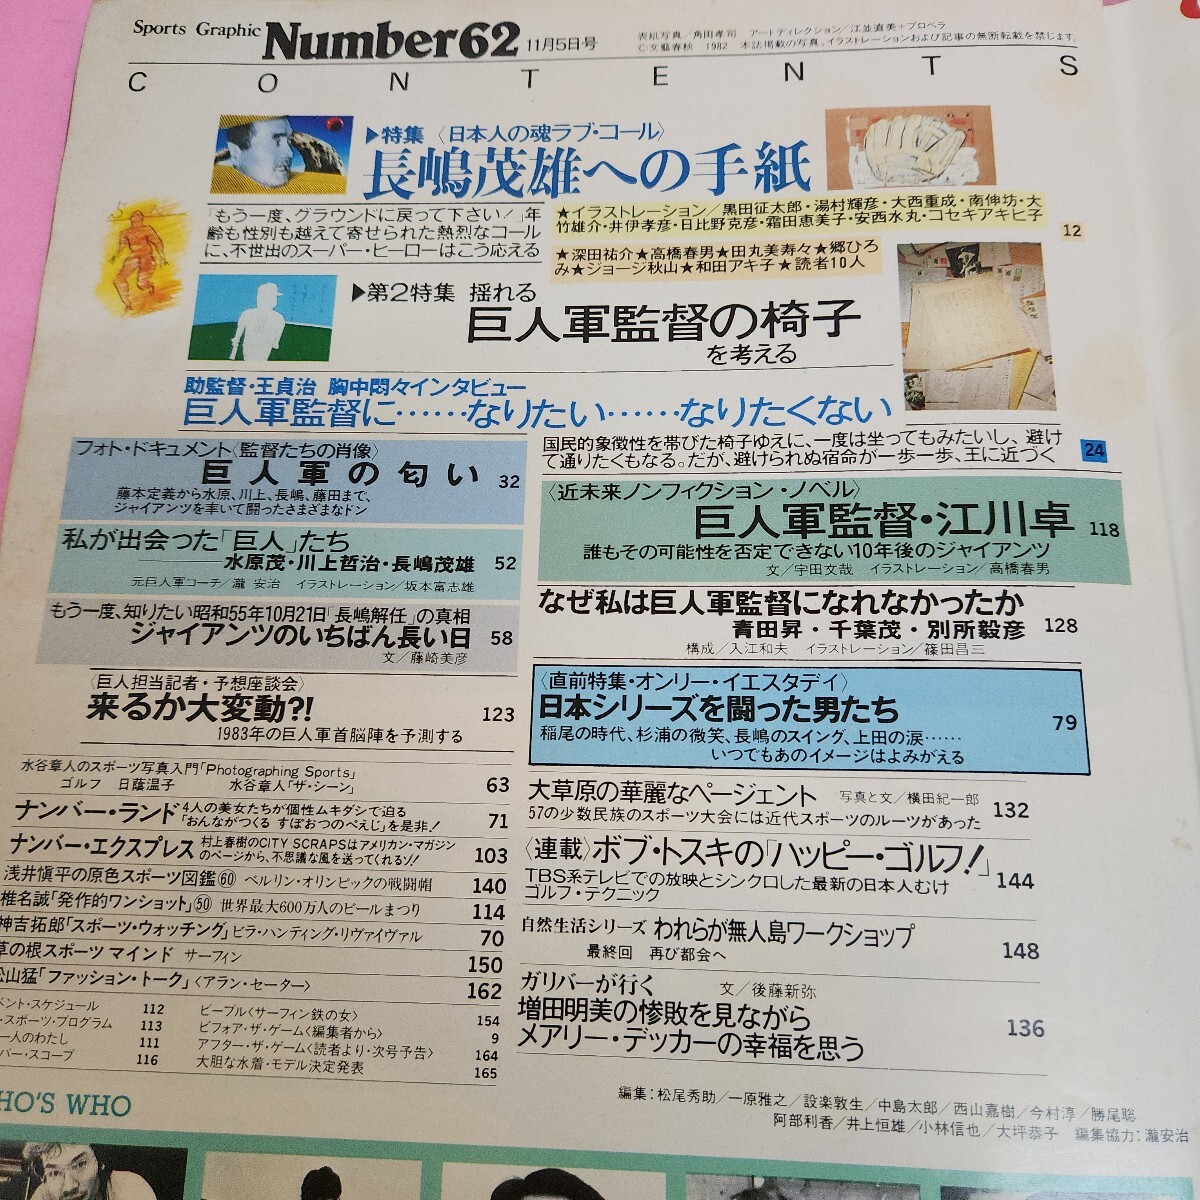 Sports Graphic Number62 11月5日号
表紙写真／角田孝司 アートディレクション／江並直美+プロペラ
©文藝春秋 1982 本誌掲載の写真、イラストレーションおよび記事の無断転載を禁じます。
CONTENTS
▶特集〈日本人の魂ラブ・コール〉
長嶋茂雄への手紙
「もう一度、グラウンドに戻って下さい！」年
齢も性別も越えて寄せられた熱烈なコール
に、不世出のスーパー・ヒーローはこう応える
★イラストレーション／黒田征太郎・湯村輝彦・大西重成・南伸坊・大
竹雄介・井伊孝彦・日比野克彦・霜田恵美子・安西水丸・コセキアキヒ子
★深田祐介★高橋春男★田丸美寿々★郷ひろ
み★ジョージ秋山★和田アキ子★読者10人
12
▶第2特集 揺れる
巨人軍監督の椅子
を考える
助監督・王貞治 胸中悶々インタビュー
巨人軍監督に……なりたい……なりたくない
国民的象徴性を帯びた椅子ゆえに、一度は坐ってもみたいし、避け
て通りたくもなる。だが、避けられぬ宿命が一歩一歩、王に近づく
24
フォト・ドキュメント〈監督たちの肖像〉
巨人軍の匂い 32
藤本定義から水原、川上、長嶋、藤田まで、
ジャイアンツを率いて闘ったさまざまなドン
私が出会った「巨人」たち
水原茂・川上哲治・長嶋茂雄 52
元巨人軍コーチ／瀧 安治 イラストレーション／坂本富志雄
もう一度、知りたい昭和55年10月21日「長嶋解任」の真相
ジャイアンツのいちばん長い日 58
文／藤崎美彦
〈巨人担当記者・予想座談会〉
来るか大変動?! 123
1983年の巨人軍首脳陣を予測する
〈近未来ノンフィクション・ノベル〉
巨人軍監督・江川卓 118
誰もその可能性を否定できない10年後のジャイアンツ
文／宇田文哉 イラストレーション／高橋春男
なぜ私は巨人軍監督になれなかったか
青田昇・千葉茂・別所毅彦 128
構成／入江和夫 イラストレーション／篠田昌三
〈直前特集・オンリー・イエスタデイ〉
日本シリーズを闘った男たち 79
稲尾の時代、杉浦の微笑、長嶋のスイング、上田の涙……
いつでもあのイメージはよみがえる
水谷章人のスポーツ写真入門「Photographing Sports」
ゴルフ 日蔭温子 水谷章人「ザ・シーン」 63
ナンバー・ランド 4人の美女たちが個性ムキダシで迫る
「おんながつくる すぽおつのぺえじ」を是非！ 71
ナンバー・エクスプレス 村上春樹のCITY SCRAPSはアメリカン・マガジン
のページから、不思議な風を送ってくれるゾ！ 103
浅井愼平の原色スポーツ図鑑60 ベルリン・オリンピックの戦闘帽 140
椎名誠「発作的ワンショット」50 世界最大600万人のビールまつり 114
神吉拓郎「スポーツ・ウォッチング」ビラ・ハンティング・リヴァイヴァル 70
草の根スポーツ マインド サーフィン 150
松山猛「ファッション・トーク」〈アラン・セーター〉 162
ベント・スケジュール 112
・スポーツ・プログラム 113
一人のわたし 111
バー・スコープ 116
ピープル〈サーフィン鉄の女〉 154
ビフォア・ザ・ゲーム〈編集者から〉 9
アフター・ザ・ゲーム〈読者より・次号予告〉 164
大胆な水着・モデル決定発表 165
大草原の華麗なページェント 写真と文／横田紀一郎 132
57の少数民族のスポーツ大会には近代スポーツのルーツがあった
〈連載〉ボブ・トスキの「ハッピー・ゴルフ！」 144
TBS系テレビでの放映とシンクロした最新の日本人むけ
ゴルフ・テクニック
自然生活シリーズ われらが無人島ワークショップ 148
最終回 再び都会へ
ガリバーが行く 文／後藤新弥
増田明美の惨敗を見ながら
メアリー・デッカーの幸福を思う 136
編集：松尾秀助／一原雅之／設楽敦生／中島太郎／西山嘉樹／今村淳／勝尾聡
阿部利香／井上恒雄／小林信也／大坪恭子 編集協力：瀧安治
HO'S WHO